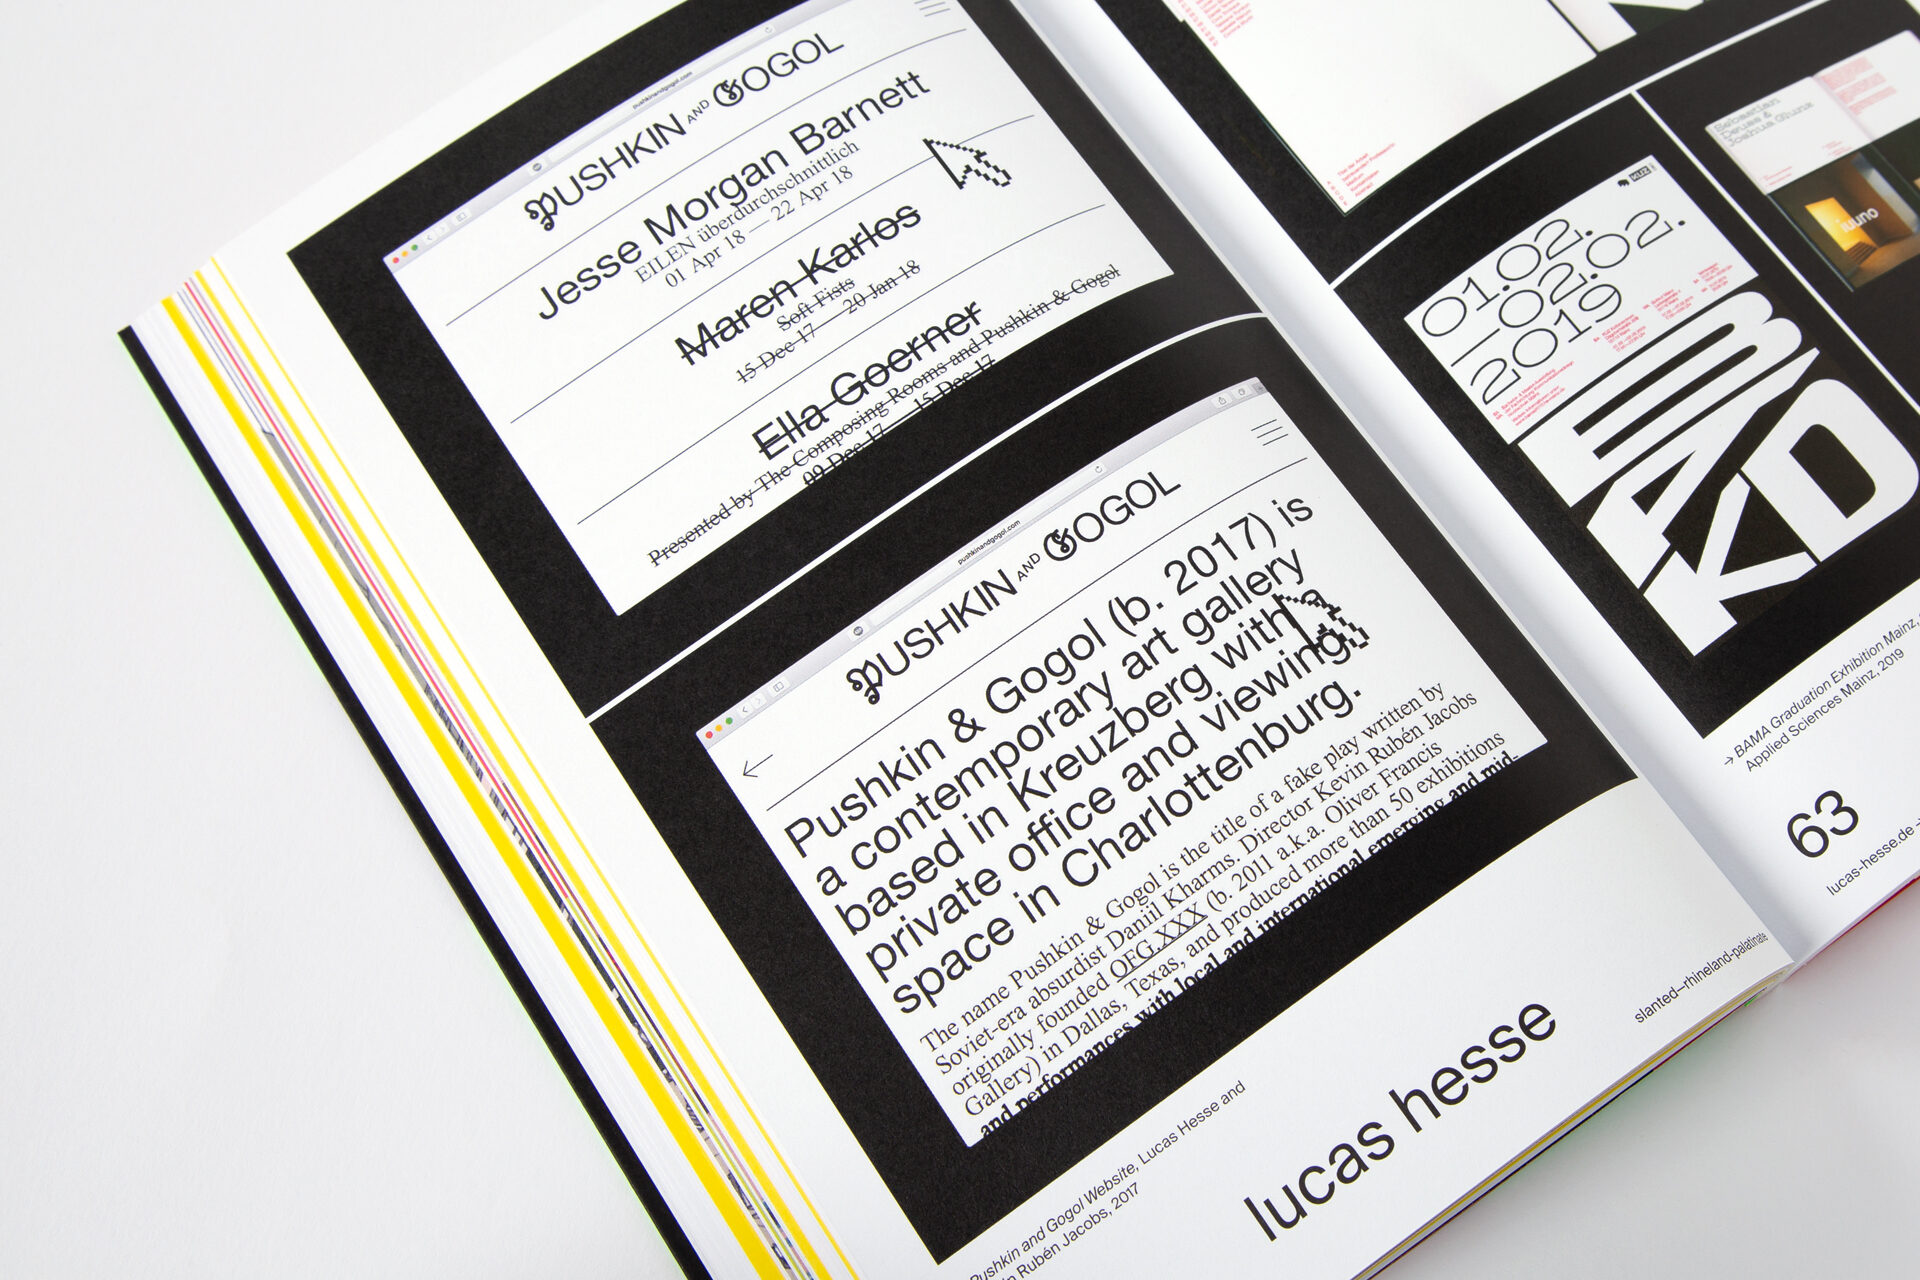 pushkinandgogol.com
PUSHKIN AND GOGOL
Jesse Morgan Barnett
EILEN überdurchschnittlich
01 Apr 18 — 22 Apr 18
Maren Karlos
Soft Fists
15 Dec 17 — 20 Jan 18
Ella Goerner
Presented by The Composing Rooms and Pushkin & Gogol
09 Dec 17 — 15 Dec 17
pushkinandgogol.com
PUSHKIN AND GOGOL
Pushkin & Gogol (b. 2017) is
a contemporary art gallery
based in Kreuzberg with a
private office and viewing
space in Charlottenburg.
The name Pushkin & Gogol is the title of a fake play written by
Soviet-era absurdist Daniil Kharms. Director Kevin Rubén Jacobs
originally founded OFG.XXX (b. 2011 a.k.a. Oliver Francis
Gallery) in Dallas, Texas, and produced more than 50 exhibitions
and performances with local and international emerging and mid-
Pushkin and Gogol Website, Lucas Hesse and
Rubén Jacobs, 2017
lucas hesse
slanted—rhineland-palatinate
Sebastian
Deuss &
Joshua
KUZ
01.02.
—02.02.
2019
BA
MA
KD
→ BAMA Graduation Exhibition Mainz,
Applied Sciences Mainz, 2019
63
lucas-hesse.de